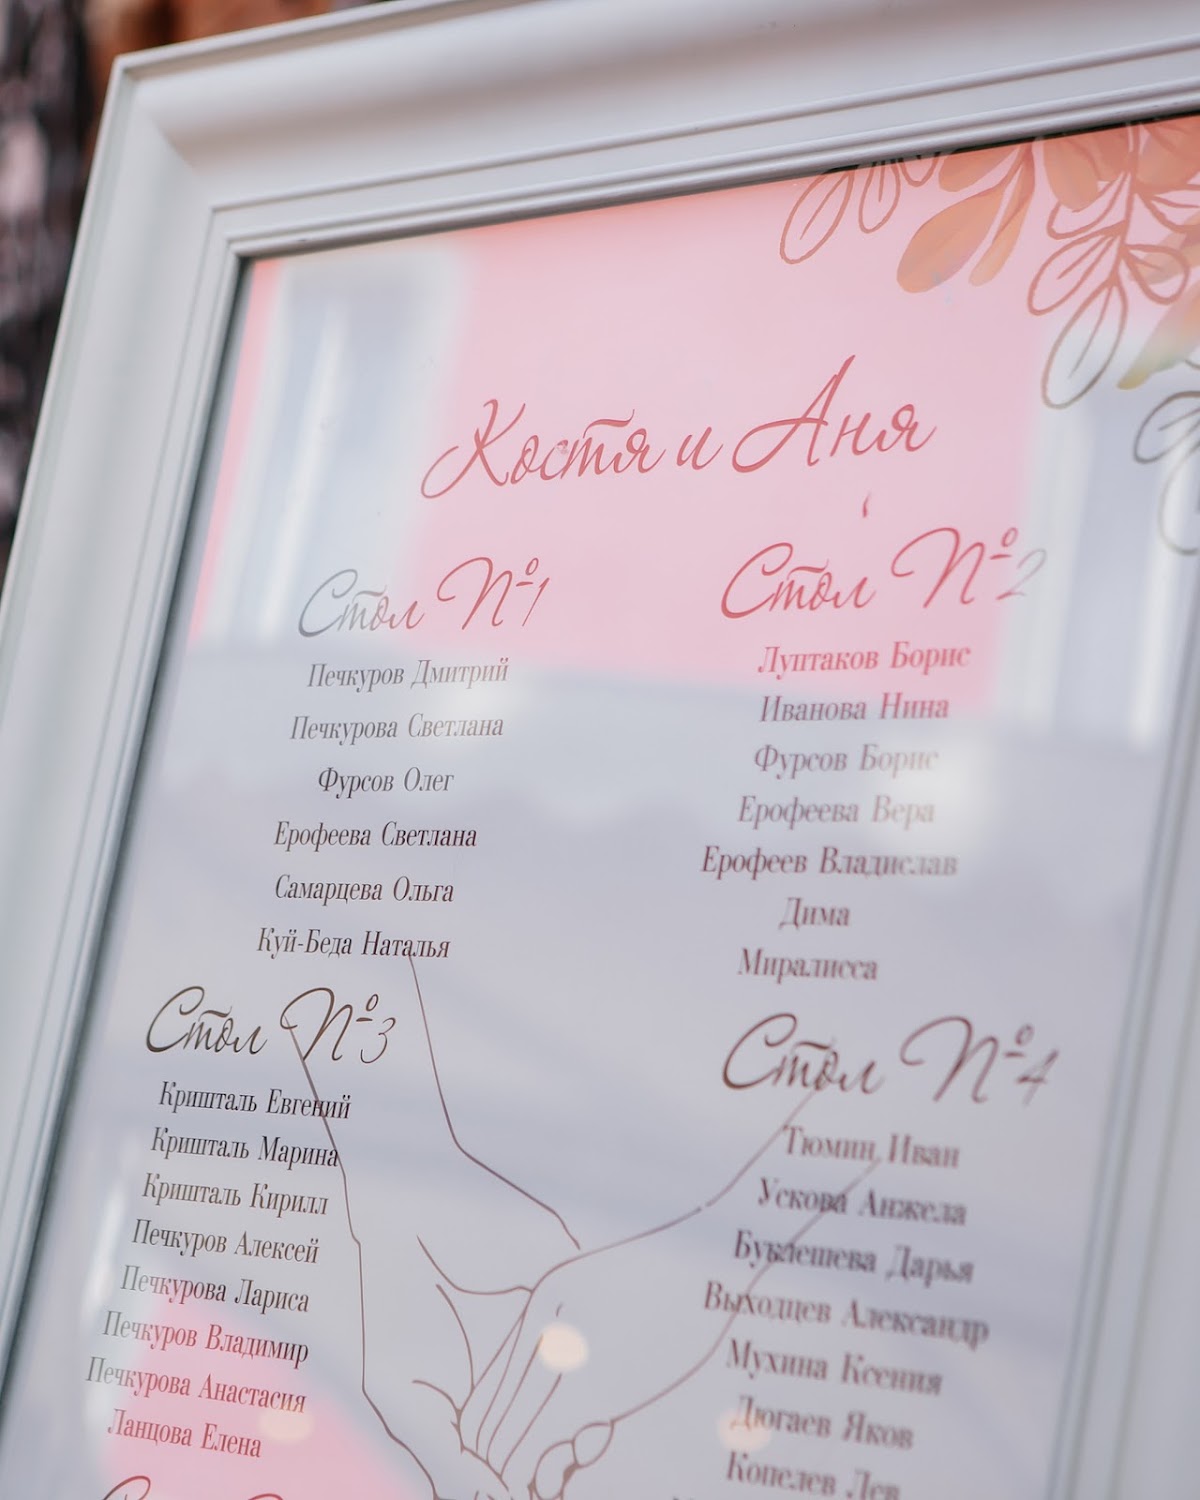 Костя и Аня
Стол №1
Печкуров Дмитрий
Печкурова Светлана
Фурсов Олег
Ерофеева Светлана
Самарцева Ольга
Куй-Беда Наталья
Стол №2
Луптаков Борис
Иванова Нина
Фурсов Борис
Ерофеева Вера
Ерофеев Владислав
Дима
Миралисса
Стол №3
Кришталь Евгений
Кришталь Марина
Кришталь Кирилл
Печкуров Алексей
Печкурова Лариса
Печкуров Владимир
Печкурова Анастасия
Ланцова Елена
Стол №4
Тюмин Иван
Ускова Анжела
Буклешева Дарья
Выходцев Александр
Мухина Ксения
Дюгаев Яков
Копелев Лев